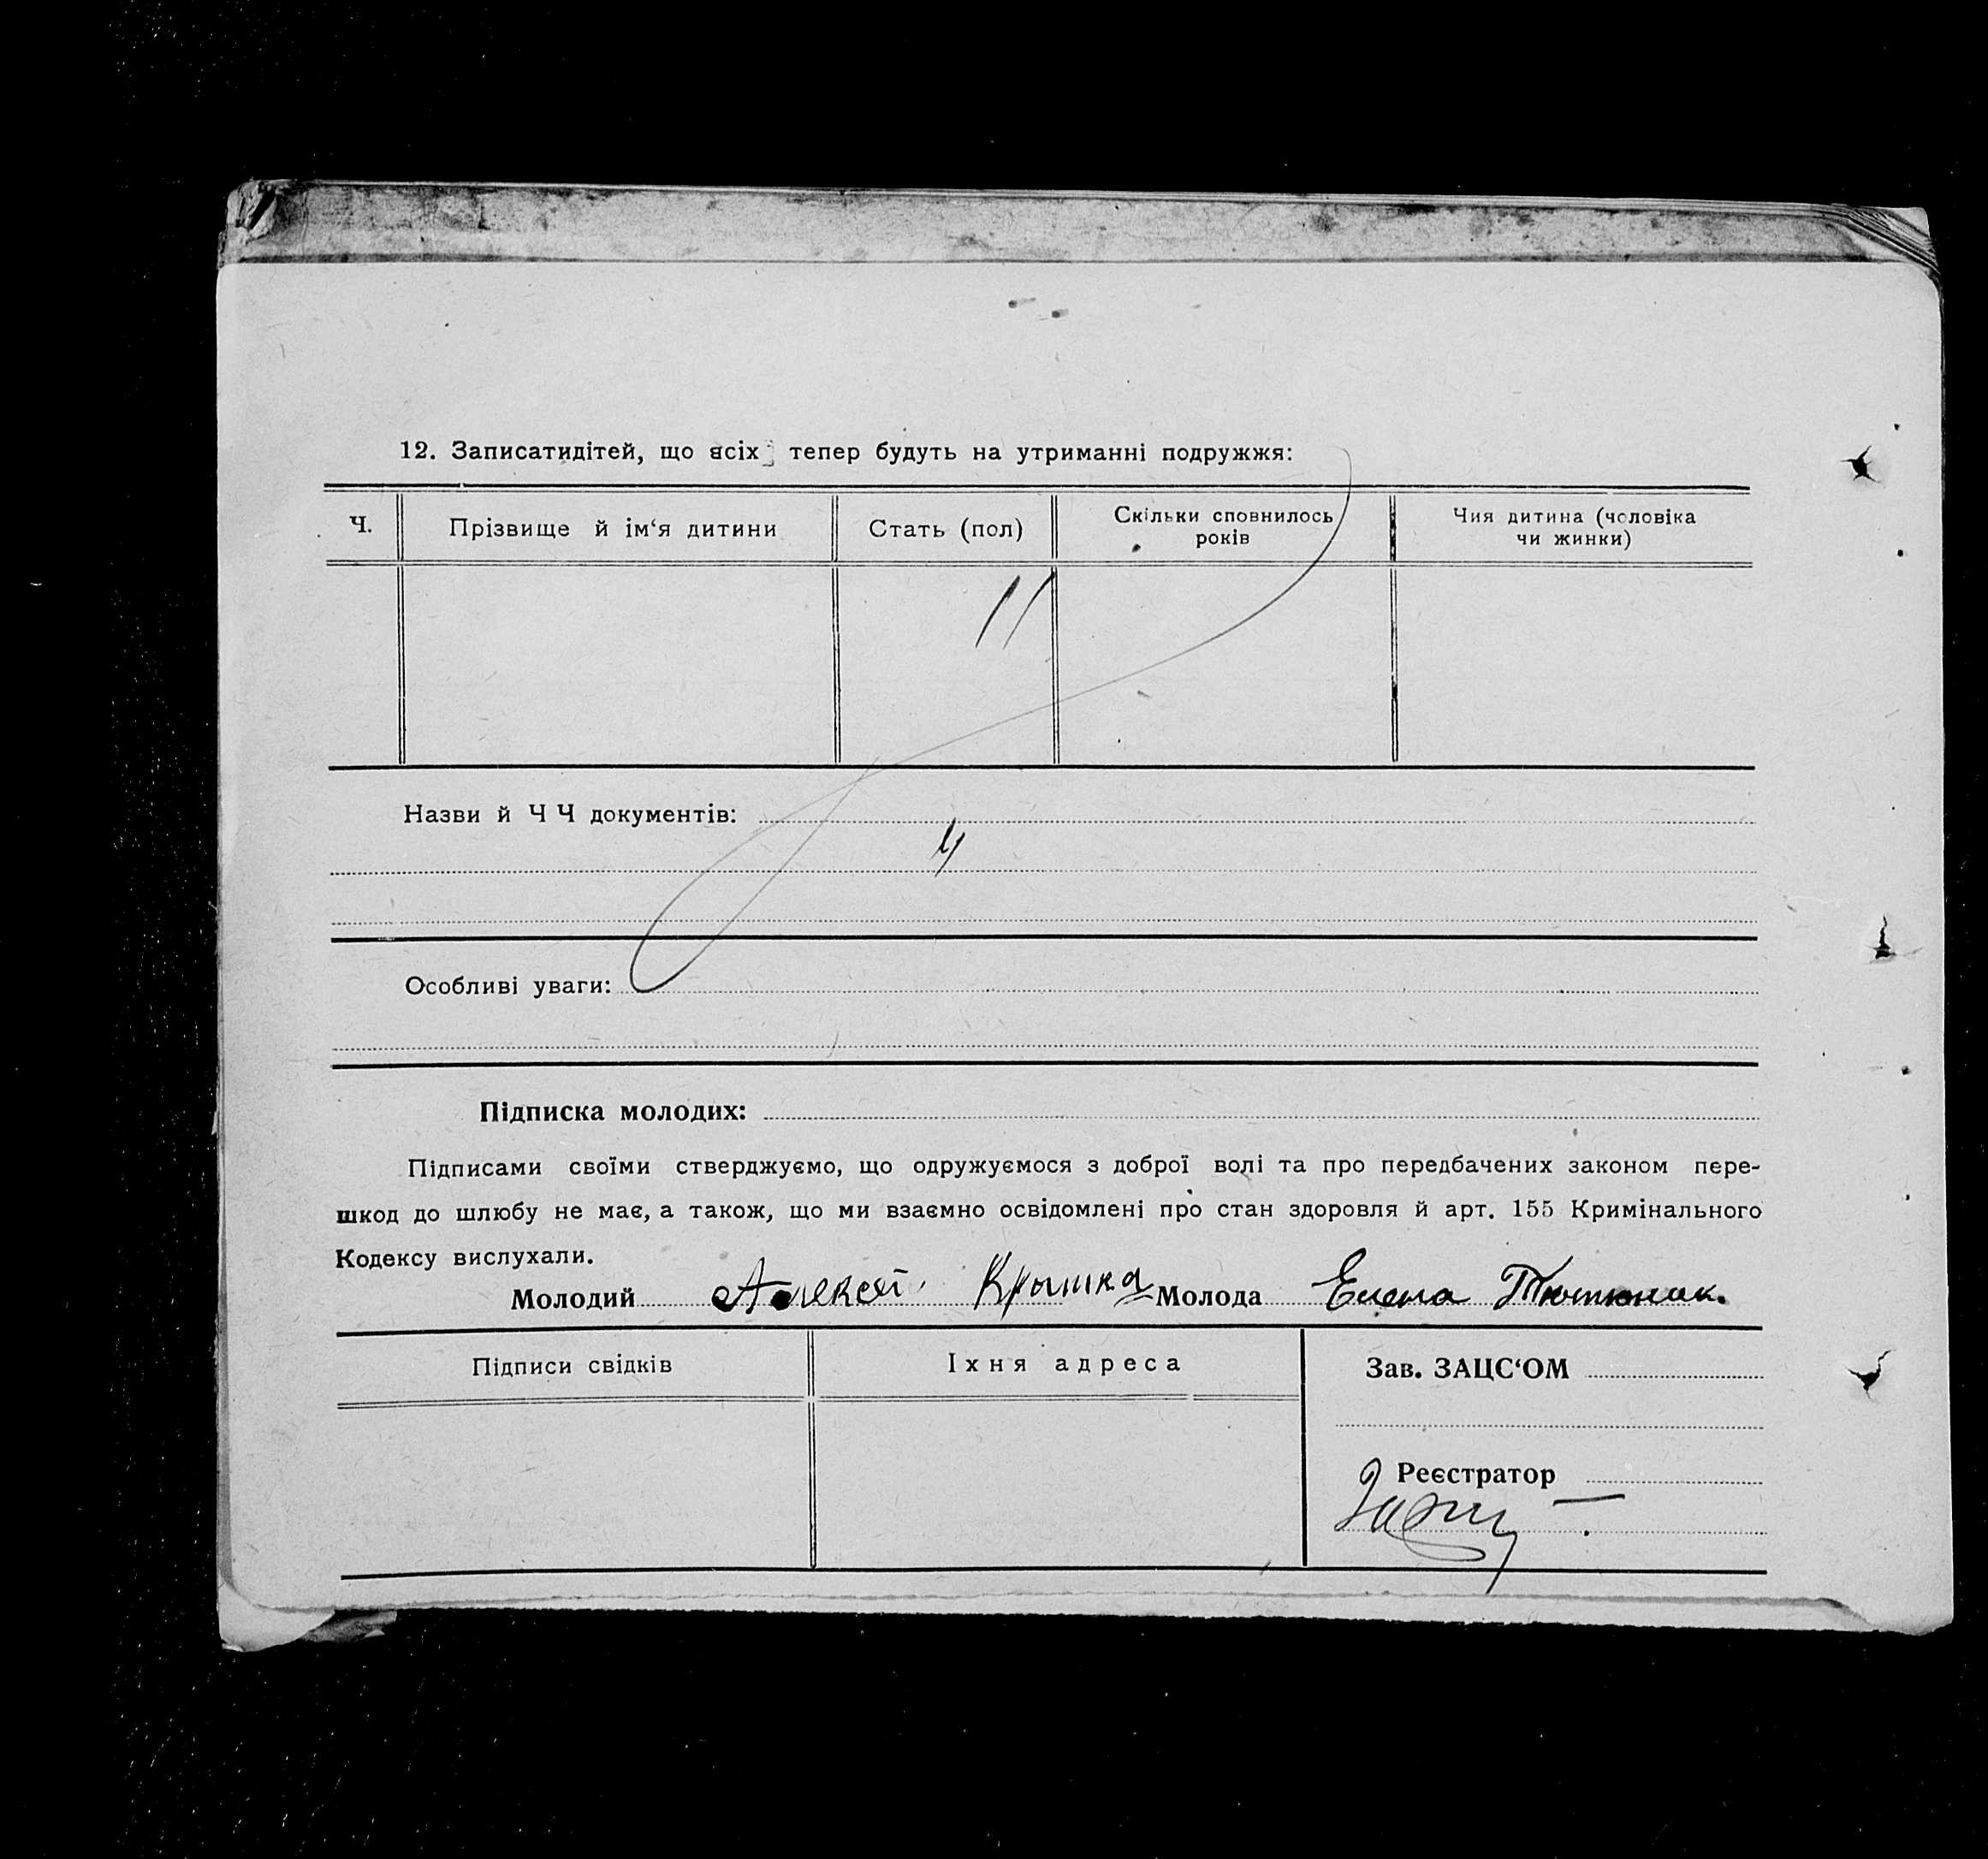 12. Записатидітей, що всіх тепер будуть на утриманні подружжя:
Ч. Прізвище й ім‘я дитини Стать (пол) Скільки сповнилось років Чия дитина (чоловіка чи жинки)
Назви й Ч Ч документів:
Особливі уваги:
Підписка молодих:
Підписами своїми стверджуємо, що одружуємося з доброї волі та про передбачених законом пере-
шкод до шлюбу не має, а також, що ми взаємно освідомлені про стан здоровля й арт. 155 Кримінального
Кодексу вислухали.
Молодий Алексей Крышка Молода Елена Тютюник.
Підписи свідків Іхня адреса Зав. ЗАЦС‘ОМ
Реєстратор